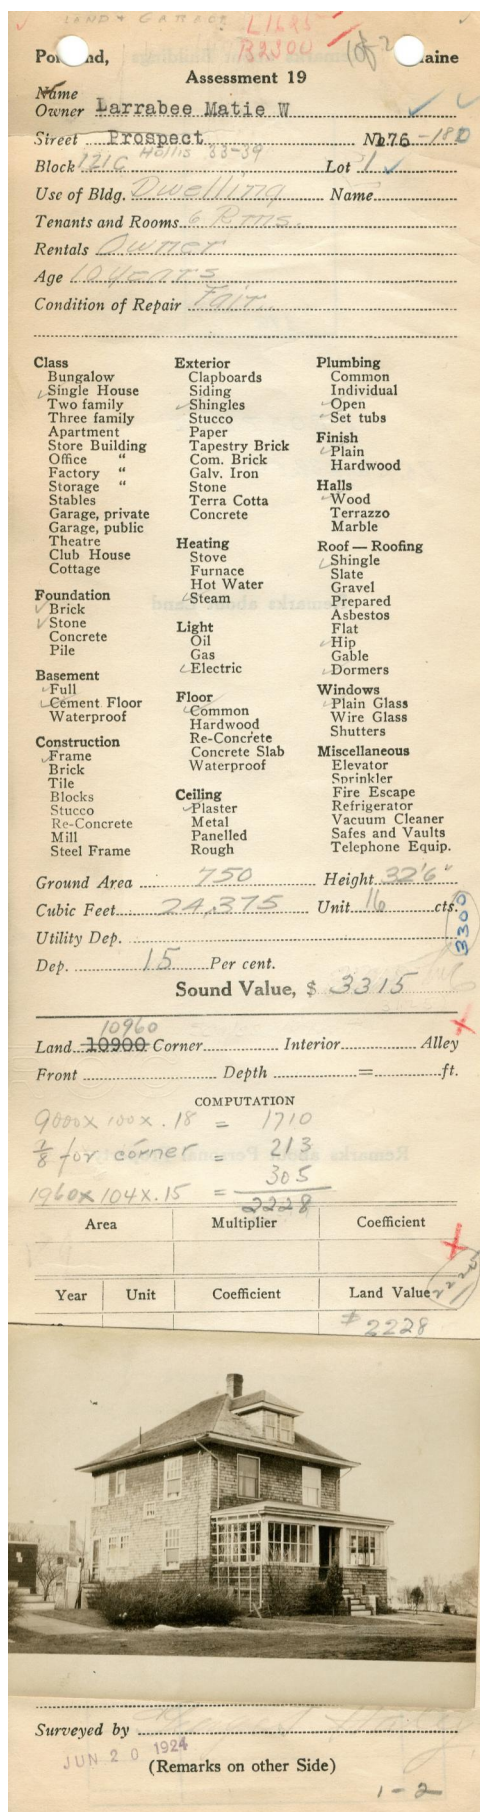 LAND & GARAGE
L1625
B2300
1 of 2
Portland, Maine
Assessment 19
Name
Owner Larrabee Matie W
Street Prospect No 176-180
Hollis 33-39
Block 121C Lot 1
Use of Bldg. Dwelling Name
Tenants and Rooms 6 Rms.
Rentals Owner
Age 10 years
Condition of Repair Fair.
Class
Bungalow
Single House
Two family
Three family
Apartment
Store Building
Office "
Factory "
Storage "
Stables
Garage, private
Garage, public
Theatre
Club House
Cottage
Foundation
Brick
Stone
Concrete
Pile
Basement
Full
Cement Floor
Waterproof
Construction
Frame
Brick
Tile
Blocks
Stucco
Re-Concrete
Mill
Steel Frame
Exterior
Clapboards
Siding
Shingles
Stucco
Paper
Tapestry Brick
Com. Brick
Galv. Iron
Stone
Terra Cotta
Concrete
Heating
Stove
Furnace
Hot Water
Steam
Light
Oil
Gas
Electric
Floor
Common
Hardwood
Re-Concrete
Concrete Slab
Waterproof
Ceiling
Plaster
Metal
Panelled
Rough
Plumbing
Common
Individual
Open
Set tubs
Finish
Plain
Hardwood
Halls
Wood
Terrazzo
Marble
Roof — Roofing
Shingle
Slate
Gravel
Prepared
Asbestos
Flat
Hip
Gable
Dormers
Windows
Plain Glass
Wire Glass
Shutters
Miscellaneous
Elevator
Sprinkler
Fire Escape
Refrigerator
Vacuum Cleaner
Safes and Vaults
Telephone Equip.
Ground Area 750 Height 32'6"
Cubic Feet 24,375 Unit 16 cts.
3300
Utility Dep.
Dep. 15 Per cent.
Sound Value, $ 3315
10960
Land 10900 Corner Interior Alley
Front Depth = ft.
COMPUTATION
9000 x 100 x .18 = 1710
1/8 for corner = 213
305
1960 x 104 x .15 = 2228
Area Multiplier Coefficient
Year Unit Coefficient Land Value
$ 2228
Surveyed by
JUN 20 1924
(Remarks on other Side)
1-2